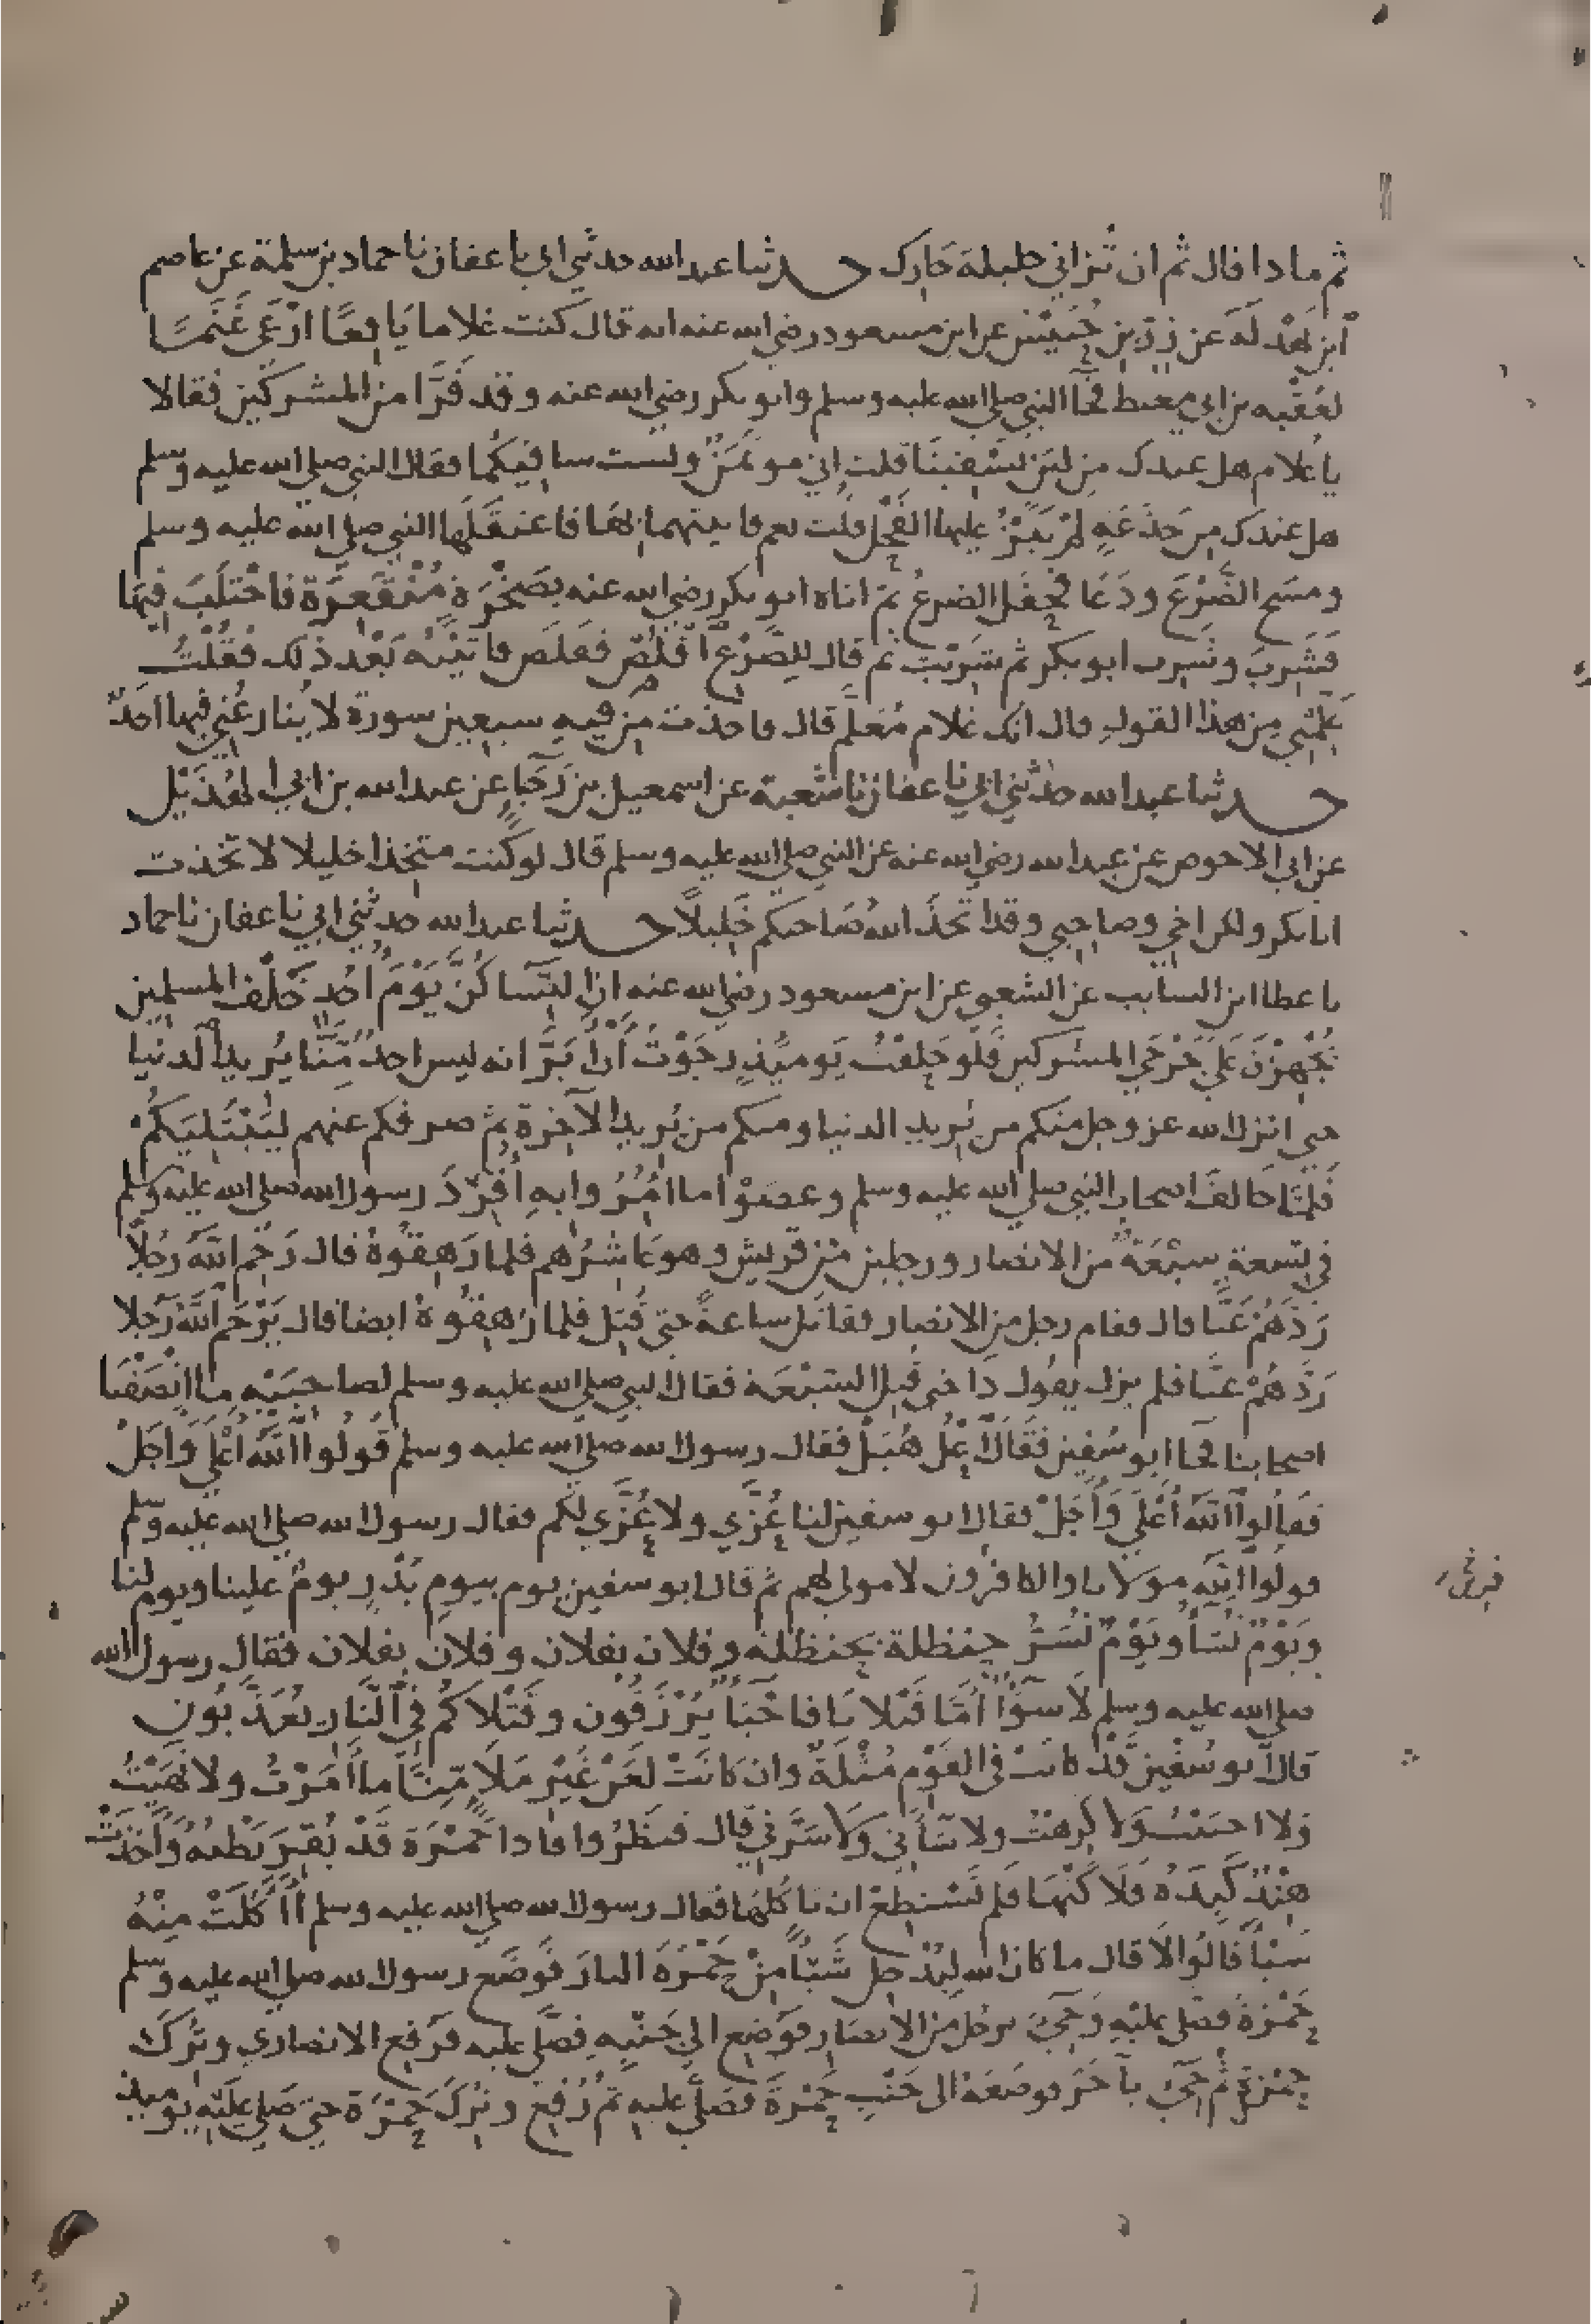 ثم ماذا قال ثم ان تزاني حليلة جارك حدثنا عبد الله حدثني ابي نا عفان نا حماد بن سلمة عن عاصم
ابن بهدلة عن زر بن حبيش عن ابن مسعود رضي الله عنه انه قال كنت غلاما يافعا ارعى غنما
لعقبه بن ابي معيط فجا النبي صلى الله عليه وسلم وابو بكر رضي الله عنه وقد فرا من المشركين فقالا
يا غلام هل عندك من لبن تسقينا قلت اني موتمن ولست ساقيكما فقال النبي صلى الله عليه وسلم
هل عندك من جذعة لم ينز عليها الفحل قلت نعم فاتيتهما بها فاعتقلها النبي صلى الله عليه وسلم
ومسح الضرع ودعا فحفل الضرع ثم اتاه ابو بكر رضي الله عنه بصخرة منقعرة فاحتلب فيها
فشرب وشرب ابو بكر ثم شربت ثم قال للضرع اقلص فقلص فاتيته بعد ذلك فقلت
علمني من هذا القول قال انك غلام معلم قال فاخذت من فيه سبعين سورة لا ينازعني فيها احد
حدثنا عبد الله حدثني ابي نا عفان نا شعبة عن اسمعيل بن رجا عن عبد الله بن ابي الهذيل
عن ابي الاحوص عن عبد الله رضي الله عنه عن النبي صلى الله عليه وسلم قال لو كنت متخذا خليلا لاتخذت
ابا بكر ولكن اخي وصاحبي وقد اتخذ الله صاحبكم خليلا حدثنا عبد الله حدثني ابي نا عفان نا حماد
نا عطا ابن السايب عن الشعبي عن ابن مسعود رضي الله عنه ان النسا كن يوم احد خلف المسلمين
يجهزن على جرحى المشركين فلو حلفت يوميذ رجوت ان ابر انه ليس احد منا يريد الدنيا
حتى انزل الله عز وجل منكم من يريد الدنيا ومنكم من يريد الآخرة ثم صرفكم عنهم ليبتليكم
فلما خالف اصحاب النبي صلى الله عليه وسلم وعصوا ما امروا به افرد رسول الله صلى الله عليه وسلم
في تسعة سبعة من الانصار ورجلين من قريش وهو عاشرهم فلما رهقوه قال رحم الله رجلا
ردهم عنا قال فقام رجل من الانصار فقاتل ساعة حتى قتل فلما رهقوه ايضا قال يرحم الله رجلا
ردهم عنا فلم يزل يقول ذا حتى قتل السبعة فقال النبي صلى الله عليه وسلم لصاحبيه ما انصفنا
اصحابنا فجا ابو سفين فقال اعل هبل فقال رسول الله صلى الله عليه وسلم قولوا الله اعلى واجل
فقالوا الله اعلى واجل فقال ابو سفين لنا عزى ولا عزى لكم فقال رسول الله صلى الله عليه وسلم
قولوا الله مولانا والكافرون لا مولى لهم ثم قال ابو سفين يوم بيوم بدر يوم علينا ويوم لنا
ويوم نسا ويوم نسر حنظلة بحنظلة وفلان بفلان وفلان بفلان فقال رسول الله
صلى الله عليه وسلم لا سوا اما قتلانا فاحيا يرزقون وقتلاكم في النار يعذبون
قال ابو سفين قد كانت في القوم مثلة وان كانت لعن غير ملا منا ما امرت ولا نهيت
ولا احببت ولا كرهت ولا سآني ولا سرني قال فنظروا فاذا حمزة قد بقر بطنه واخذت
هند كبده فلاكتها فلم تستطع ان تاكلها فقال رسول الله صلى الله عليه وسلم أاكلت منه
شيا قالوا لا قال ما كان الله ليدخل شيا من حمزة النار فوضع رسول الله صلى الله عليه وسلم
حمزة فصلى عليه وجي برجل من الانصار فوضع الى جنبه فصلى عليه فرفع الانصاري وترك
حمزة ثم جي بآخر فوضعه الى جنب حمزة فصلى عليه ثم رفع وترك حمزة حتى صلى عليه يوميذ